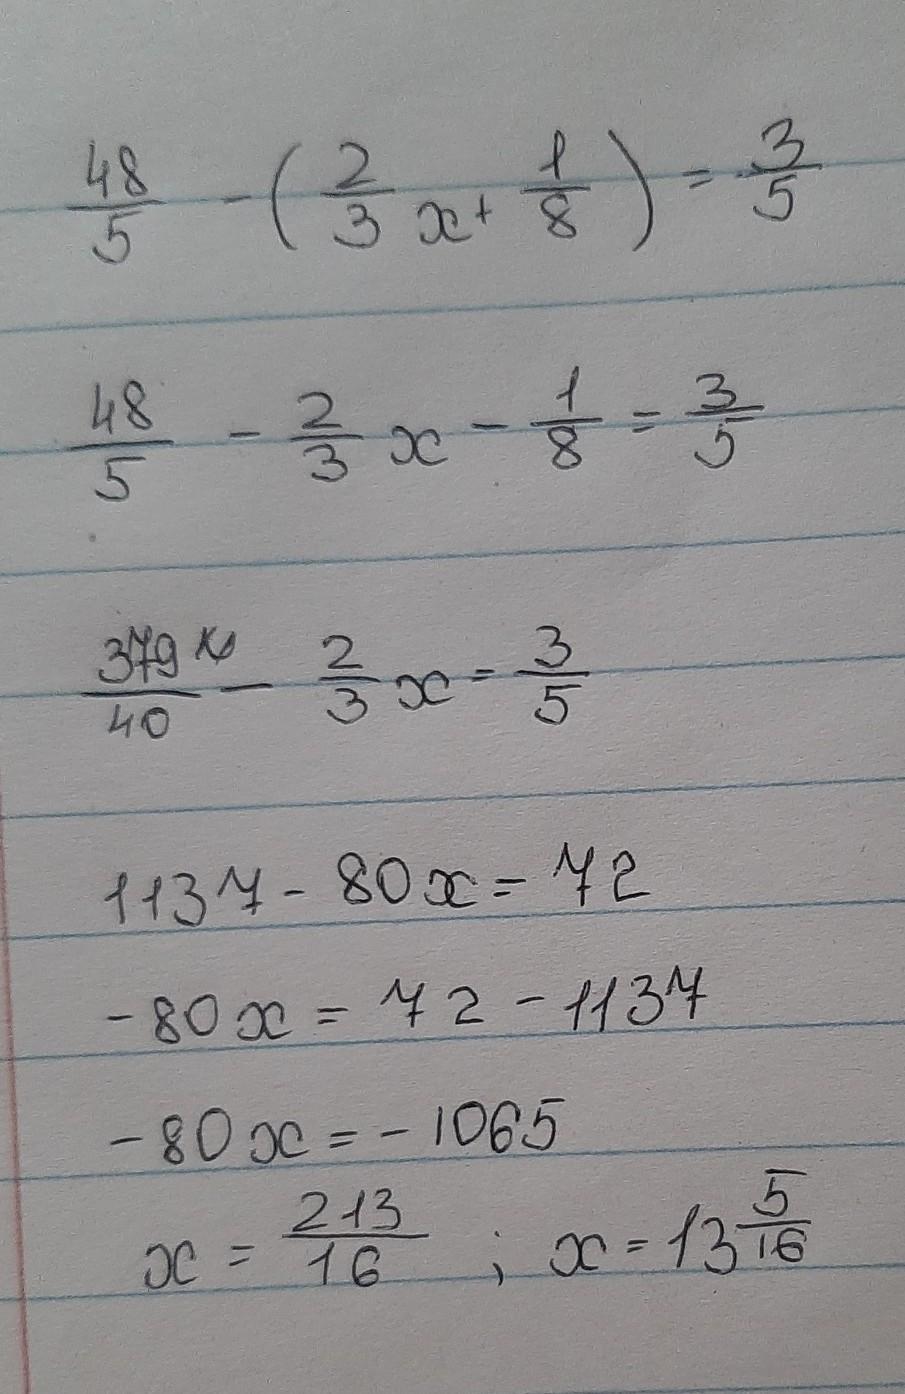 48/5 - (2/3 x + 1/8) = 3/5
48/5 - 2/3 x - 1/8 = 3/5
379/40 - 2/3 x = 3/5
1137 - 80x = 72
-80x = 72 - 1137
-80x = -1065
x = 213/16 ; x = 13 5/16